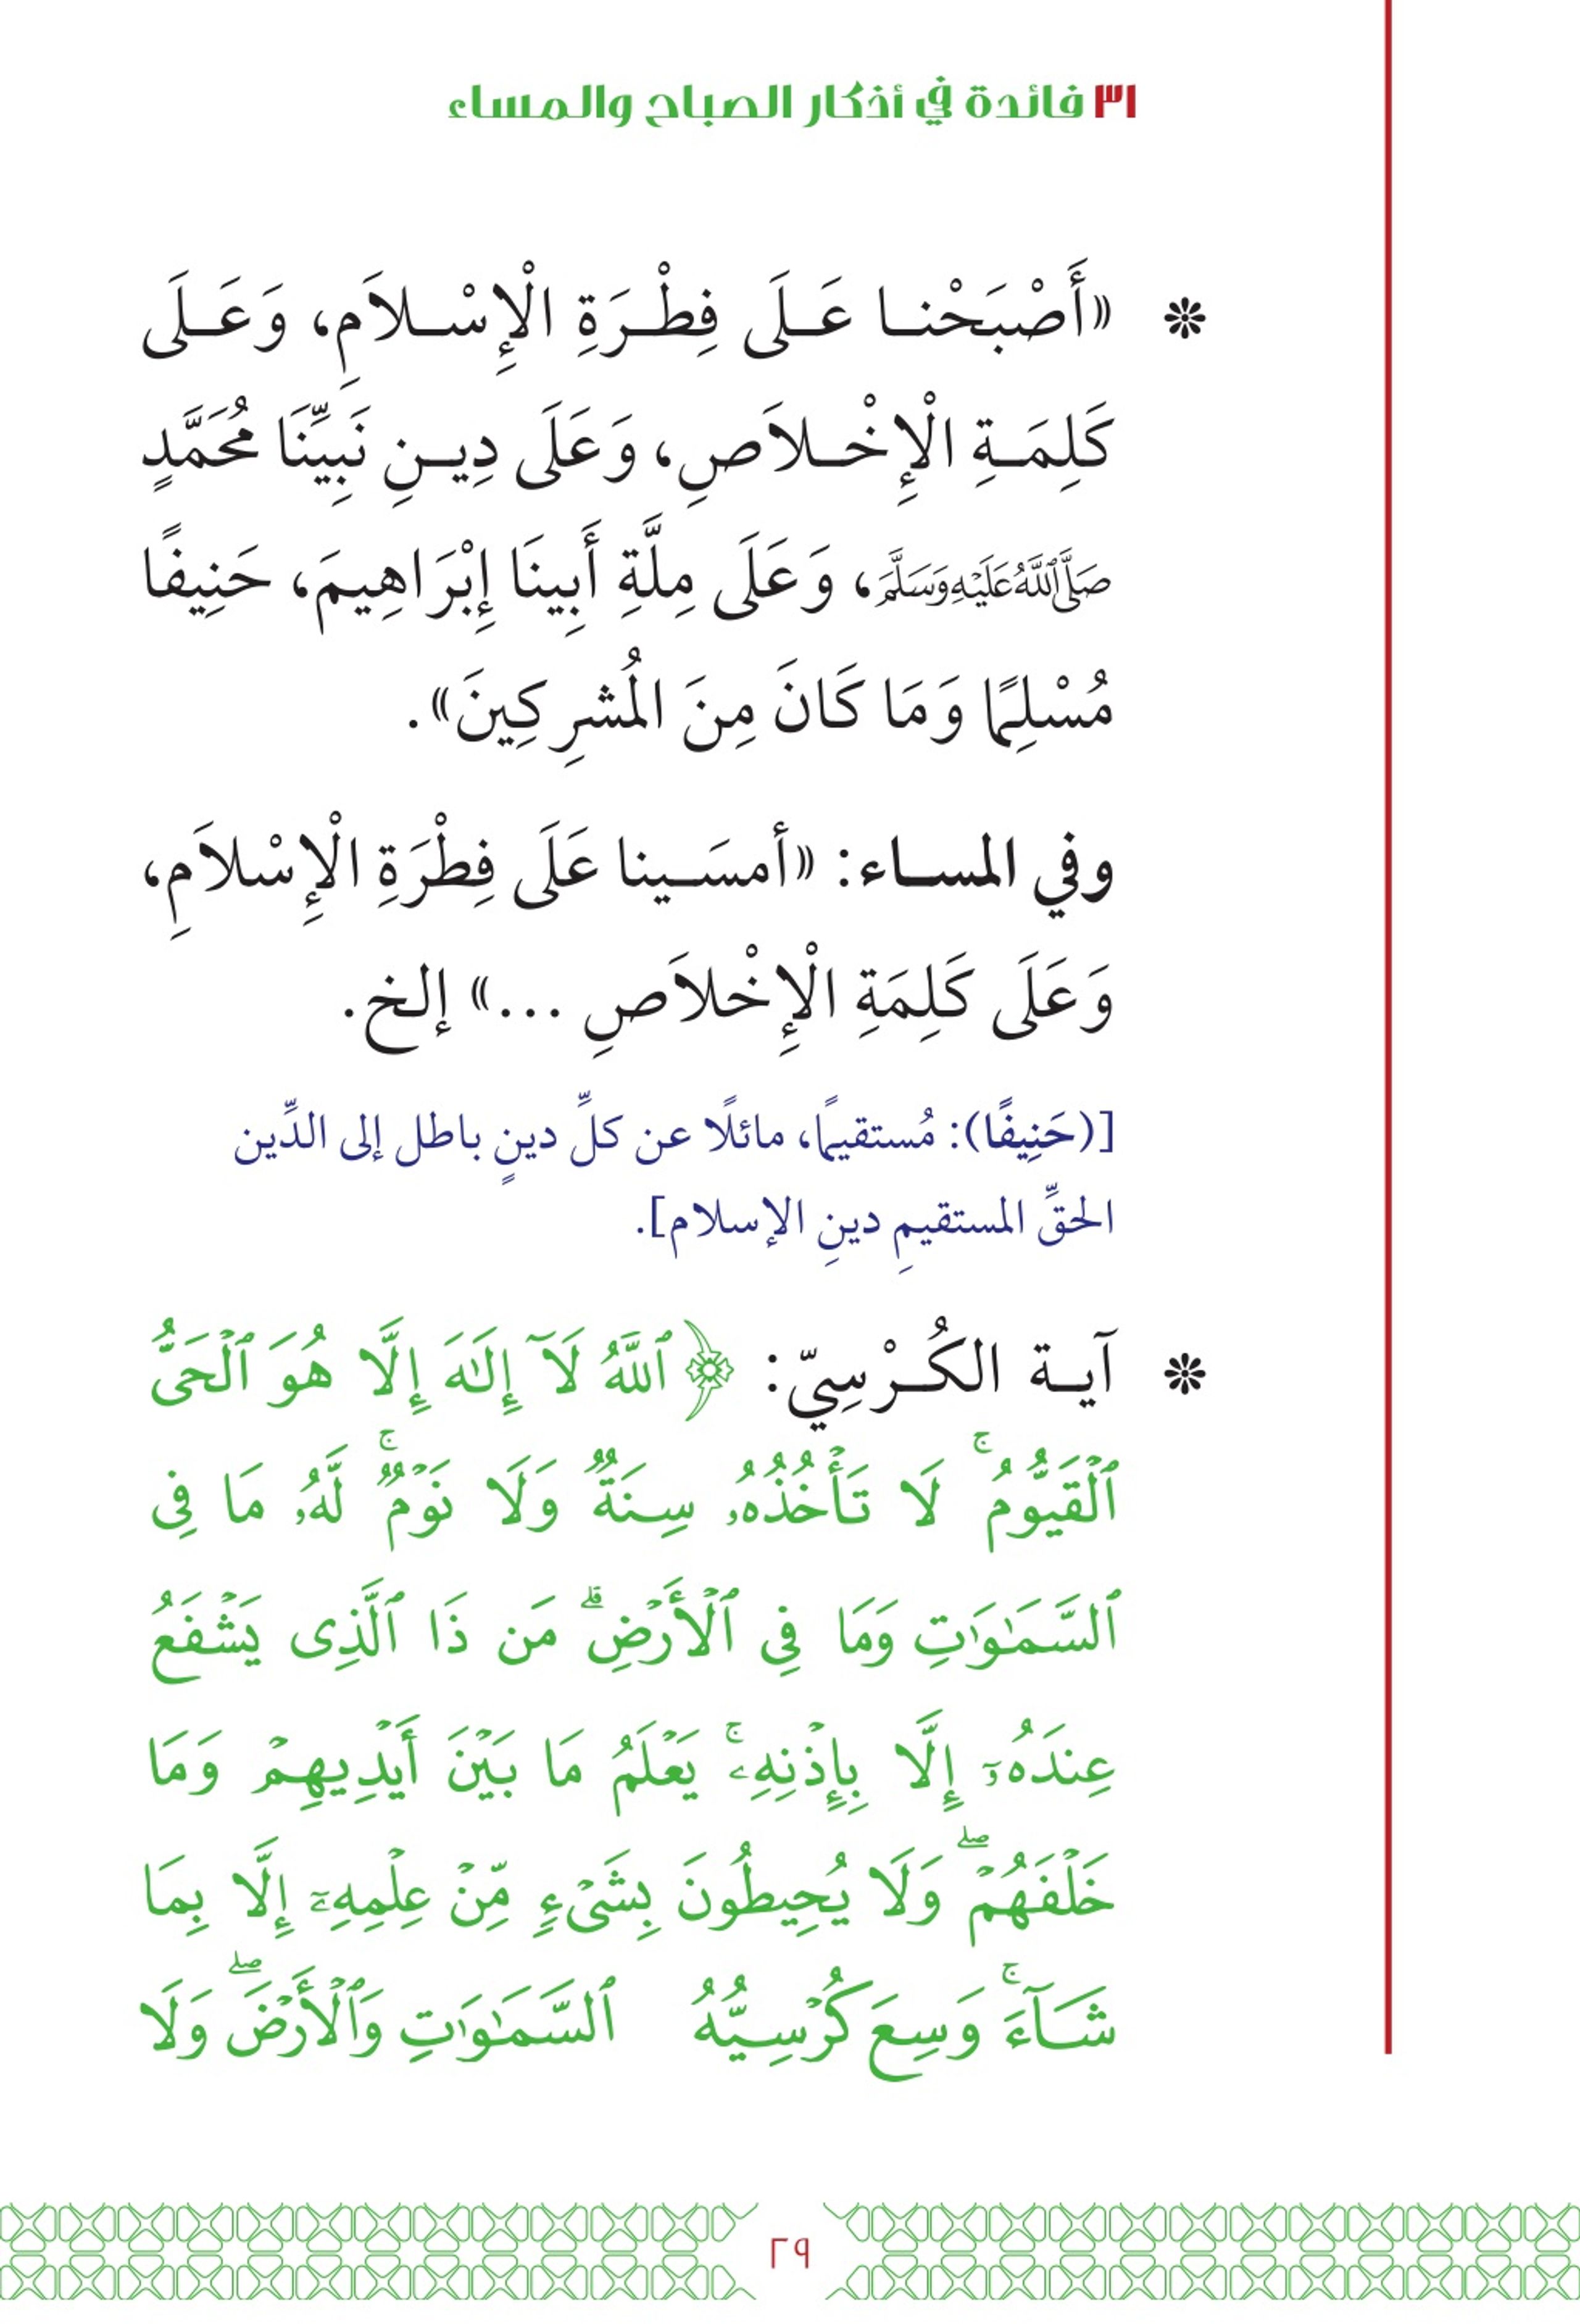 ٣١ فائدة في أذكار الصباح والمساء
❊ «أَصْبَحْنا عَلَى فِطْرَةِ الْإِسْلاَمِ، وَعَلَى
كَلِمَةِ الْإِخْلاَصِ، وَعَلَى دِينِ نَبِيِّنَا مُحَمَّدٍ
صَلَّى اللَّهُ عَلَيْهِ وَسَلَّمَ، وَعَلَى مِلَّةِ أَبِينَا إِبْرَاهِيمَ، حَنِيفًا
مُسْلِمًا وَمَا كَانَ مِنَ الْمُشرِكِينَ».
وفي المساء: «أمسَينا عَلَى فِطْرَةِ الْإِسْلاَمِ،
وَعَلَى كَلِمَةِ الْإِخْلاَصِ ...» إلخ.
[(حَنِيفًا): مُستقيمًا، مائلًا عن كلِّ دينٍ باطل إلى الدِّين
الحقِّ المستقيمِ دينِ الإسلام].
❊ آية الكُرْسِيّ: ﴿ٱللَّهُ لَآ إِلَٰهَ إِلَّا هُوَ ٱلْحَىُّ
ٱلْقَيُّومُ ۚ لَا تَأْخُذُهُۥ سِنَةٌ وَلَا نَوْمٌ ۚ لَّهُۥ مَا فِى
ٱلسَّمَٰوَٰتِ وَمَا فِى ٱلْأَرْضِ ۗ مَن ذَا ٱلَّذِى يَشْفَعُ
عِندَهُۥٓ إِلَّا بِإِذْنِهِۦ ۚ يَعْلَمُ مَا بَيْنَ أَيْدِيهِمْ وَمَا
خَلْفَهُمْ ۖ وَلَا يُحِيطُونَ بِشَىْءٍ مِّنْ عِلْمِهِۦٓ إِلَّا بِمَا
شَآءَ ۚ وَسِعَ كُرْسِيُّهُ ٱلسَّمَٰوَٰتِ وَٱلْأَرْضَ ۖ وَلَا
٢٩